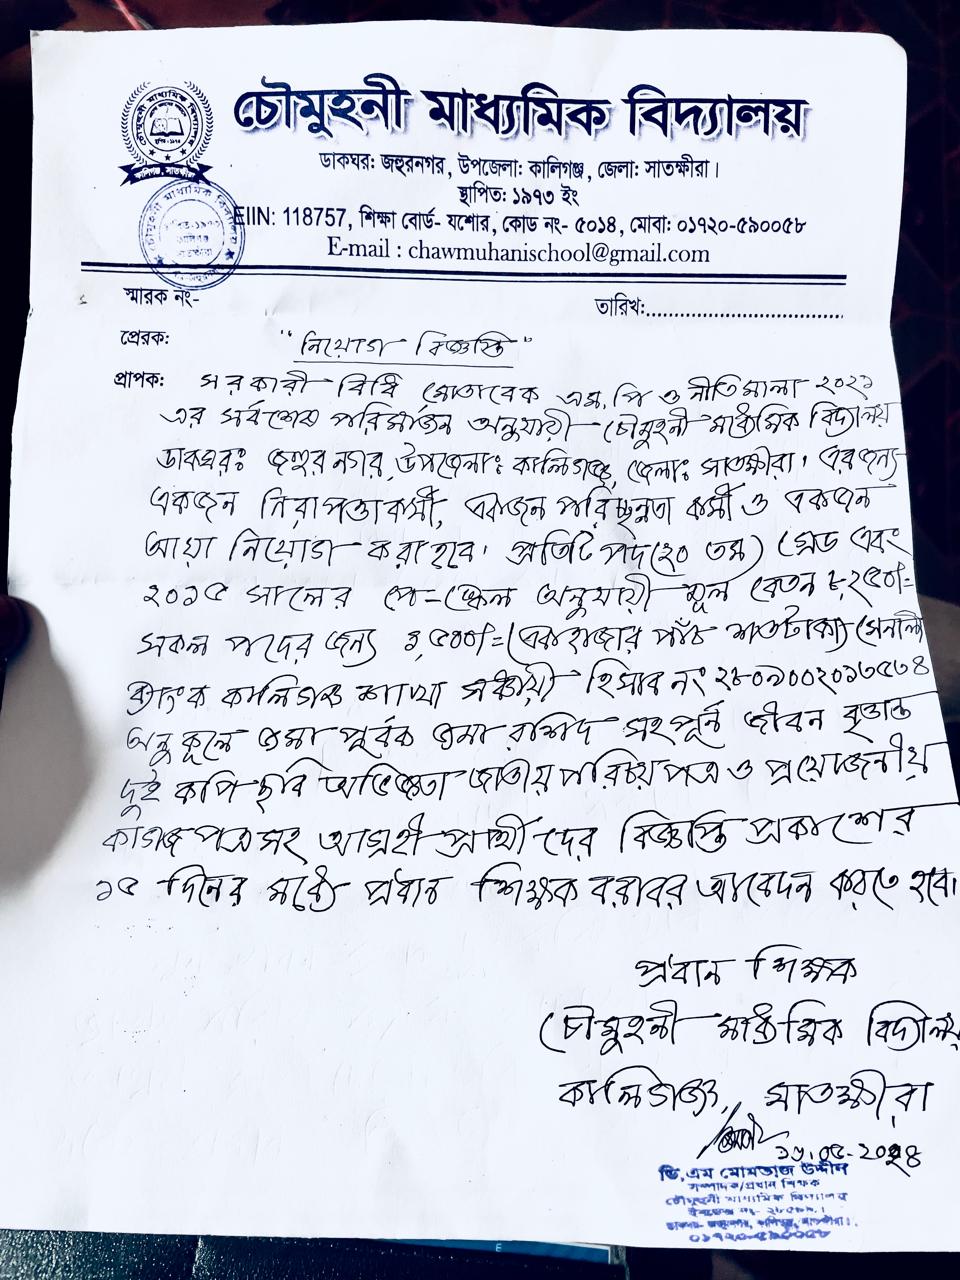 চৌমুহনী মাধ্যমিক বিদ্যালয়
ডাকঘর: জহুরনগর, উপজেলা: কালিগঞ্জ, জেলা: সাতক্ষীরা।
স্থাপিত: ১৯৭৩ ইং
EIIN: 118757, শিক্ষা বোর্ড- যশোর, কোড নং- ৫০১৪, মোবা: ০১৭২০-৫৯০০৫৮
E-mail : chawmuhanischool@gmail.com
স্মারক নং-
তারিখ:
প্রেরক:
"নিয়োগ বিজ্ঞপ্তি"
প্রাপক: সরকারী বিধি মোতাবেক এম, পি ও নীতিমালা ২০২১
এর সর্বশেষ পরিমার্জন অনুযায়ী চৌমুহনী মাধ্যমিক বিদ্যালয়
ডাকঘর: জহুর নগর, উপজেলা: কালিগঞ্জ, জেলা: সাতক্ষীরা। এর জন্য
একজন নিরাপত্তাকর্মী, একজন পরিচ্ছন্নতা কর্মী ও একজন
আয়া নিয়োগ করা হবে। প্রতিটি পদ (২০ তম) গ্রেড এবং
২০১৫ সালের পে-স্কেল অনুযায়ী মূল বেতন ৮,২৫০/=
সকল পদের জন্য ১,৫০০/= (এক হাজার পাঁচ শত টাকা) সোনালী
ব্যাংক কালিগঞ্জ শাখা সঞ্চয়ী হিসাব নং
অনুকূলে জমা পূর্বক জমা রশিদ সহ পূর্ন জীবন বৃত্তান্ত
দুই কপি ছবি অভিজ্ঞতা জাতীয় পরিচয় পত্র ও প্রয়োজনীয়
কাগজ পত্রসহ আগ্রহী প্রার্থীদের বিজ্ঞপ্তি প্রকাশের
১৫ দিনের মধ্যে প্রধান শিক্ষক বরাবর আবেদন করতে হবে।
প্রধান শিক্ষক
চৌমুহনী মাধ্যমিক বিদ্যালয়
কালিগঞ্জ, সাতক্ষীরা
জি,এম মোমতাজ উদ্দীন
সম্পাদক/প্রধান শিক্ষক
চৌমুহনী মাধ্যমিক বিদ্যালয়
০১৭২০-৫৯০০৫৮